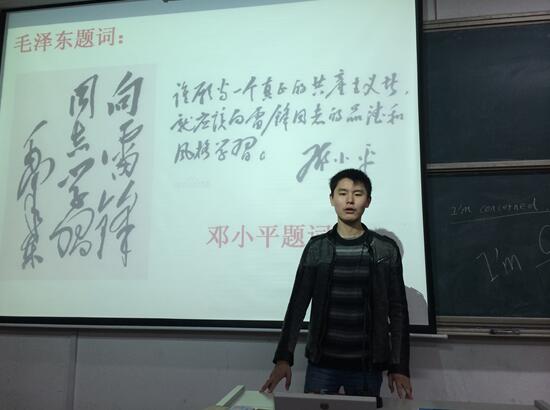 毛泽东题词：
向雷锋
同志学习
毛泽东
谁愿当一个真正的共产主义者，
就应该向雷锋同志的品德和
风格学习。
邓小平
邓小平题词
I'm concerned
I'm